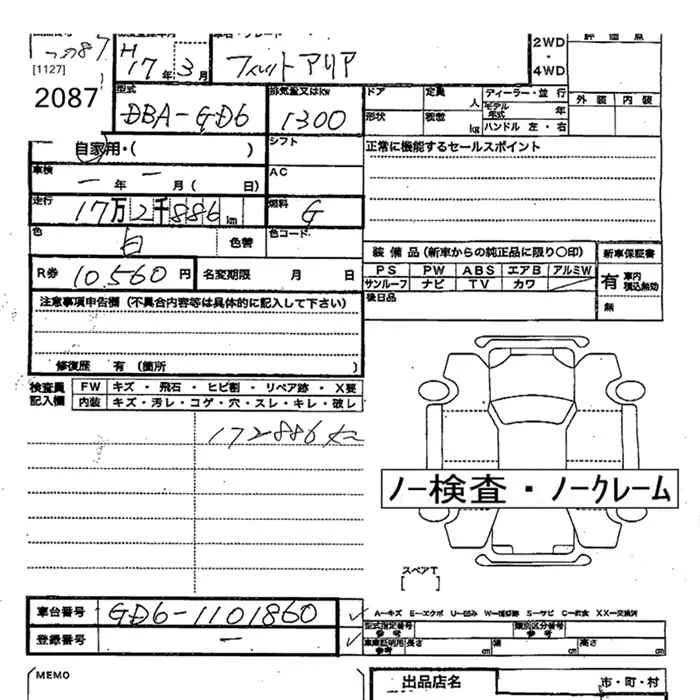 [1127]
2087
H
17年3月
フィットアリア
2WD
・
4WD
評 価 点
外 装
内 装
型式
DBA-GD6
排気量又はkw
1300
ドア
定員
人
ディーラー・並 行
モデル年式
年
形状
積載
kg
ハンドル 左 ・ 右
自家用・( )
シフト
正常に機能するセールスポイント
車検
ー年 ー月( 日)
AC
走行
17万2千886km
燃料
G
色
白
色替
色コード
装 備 品 (新車からの純正品に限り〇印)
新車保証書
R券
10,560円
名変期限 月 日
PS PW ABS エアB アルミW
サンルーフ ナビ TV カワ
有 車内積込無効
無
後日品
注意事項申告欄 (不具合内容等は具体的に記入して下さい)
修復歴 有 (箇所 )
検査員記入欄
FW キズ ・ 飛石 ・ ヒビ割 ・ リペア跡 ・ X要
内装 キズ・汚レ・コゲ・穴・スレ・キレ・破レ
172886
ノー検査・ノークレーム
スペアT
[ ]
車台番号
GD6-1101860
登録番号
ー
型式指定番号
参考
類別区分番号
参考
参考
長さ
cm
幅
cm
高さ
cm
MEMO
出品店名
市・町・村